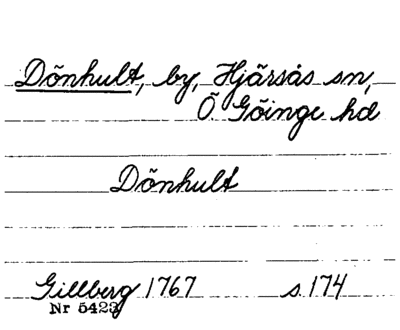 Dönhult, by, Hjärsås sn,
Ö Göinge hd
Dönhult
Gillberg 1767 s 174
Nr 5423